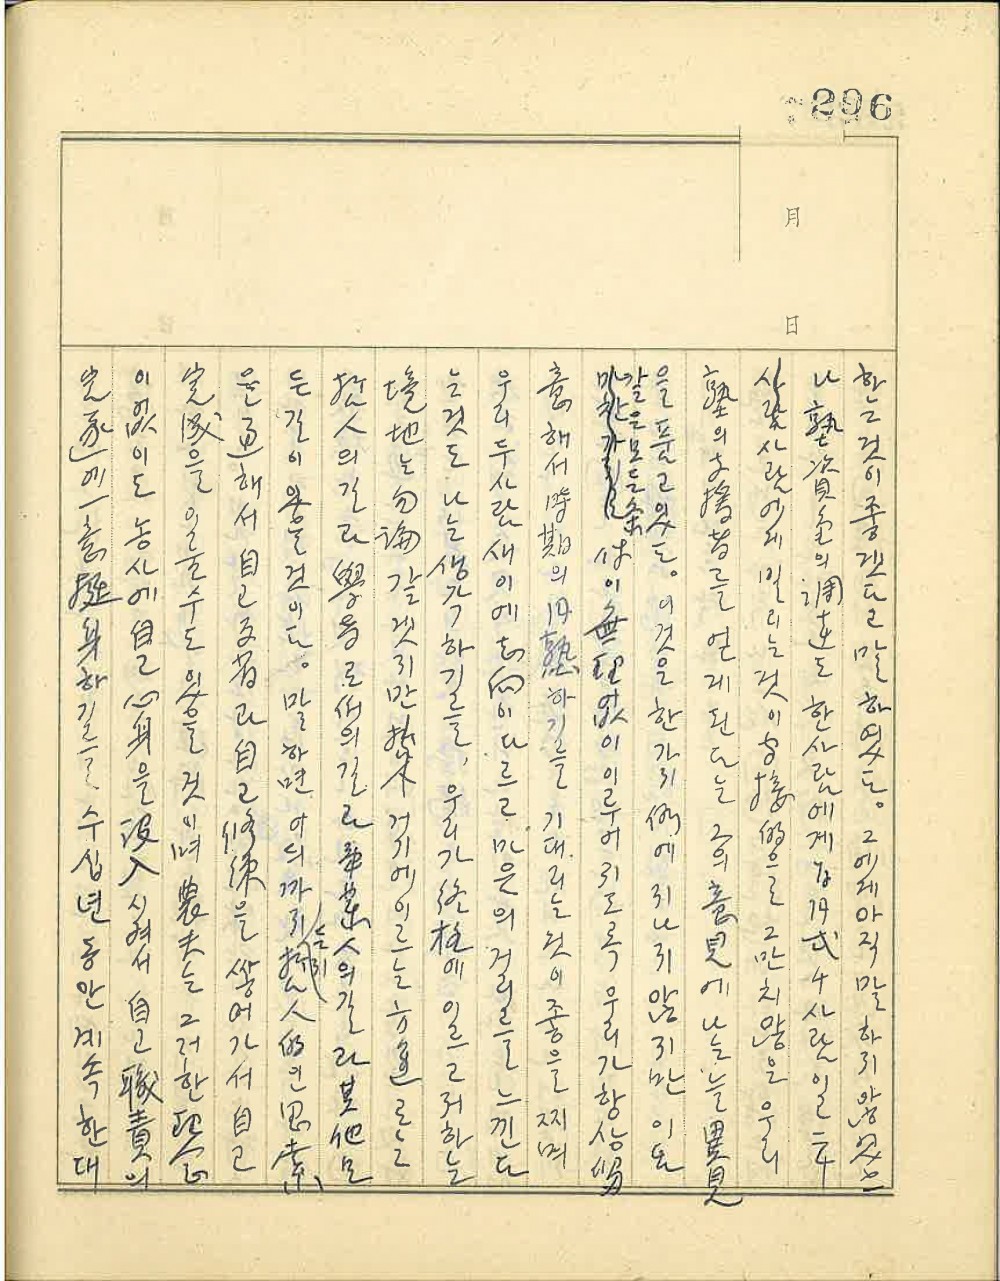 296
月
日
한 그것이 좋겠다고 말하였다. 그에게 아직 말하지 않았으
나 塾資金의 調達도 한사람에게 백円式 十사람 일군
사람사람에게 빌리는 것이 直接的으로 그만치 많은 우리
塾의 支撐者를 얻게 된다는 그의 意見에 나는 늘 異見
을 품고 있다. 이것은 한가지 例에 지나지 않지만 이와
같은 모든 条件이 無理없이 이루어지도록 우리가 항상 留
意해서 時期의 円熟하기를 기대리는 것이 좋을찌며
우리 두사람 새이에 志向이 다르고 마음의 거리를 느낀다
는것도 나는 생각하기를, 우리가 終極에 일르고저 하는
境地는 勿論 같겟지만 거기에 이르는 方途로는
哲人의 길과 學者로서의 길과 人의 길과 其他 모
든 길이 있을 것이다. 말하면 어듸까지든지 哲人的인 思索
을 通해서 自己反省과 自己修練을 쌓어가서 自己
完成을 일울수도 있을 것이며 農夫는 그저 한 理念
이 없이도 농사에 自己心身을 沒入시켜서 自己職責의
完遂에 一意挺身하길르 수십년동안 계속한대